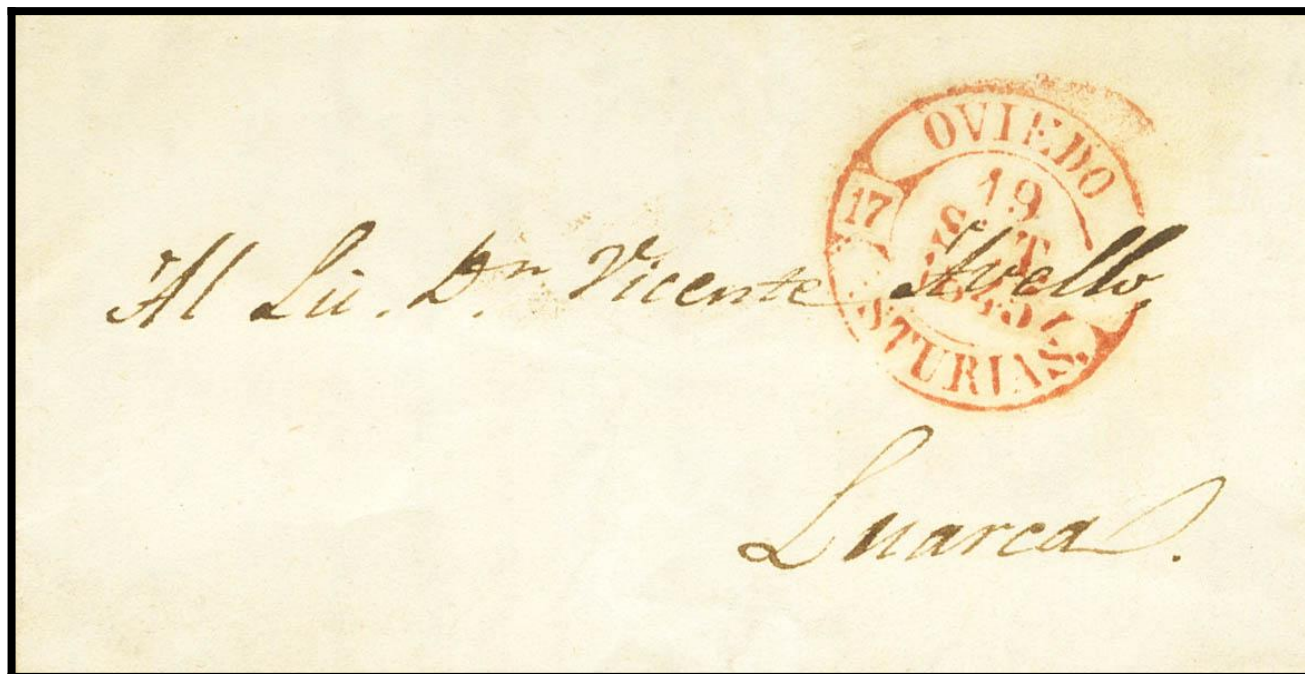 OVIEDO
17
19
STURIAS.
Al Lic. Dn. Vicente Avello,
Luarca.